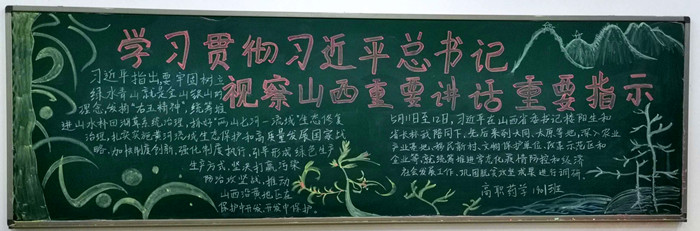 学习贯彻习近平总书记
视察山西重要讲话重要指示
习近平指出要牢固树立
绿水青山就是金山银山的
理念,发扬"右玉精神",统筹推
进山水林田湖草系统治理,抓好"两山七河一流域"生态修复
治理,扎实实施黄河流域生态保护和高质量发展国家战
略,加快制度创新,强化制度执行,引导形成绿色生产
生产方式,坚决打赢污染
防治攻坚战,推动
山西沿黄地区在
保护中开发,开发中保护。
5月11日至12日,习近平在山西省委书记楼阳生和
省长林武陪同下,先后来到大同、太原等地,深入农业
产业基地、移民新村、文物保护单位、改革示范区和
企业等,就统筹推进常态化疫情防控和经济
社会发展工作、巩固脱贫攻坚成果进行调研。
高职药学1901班